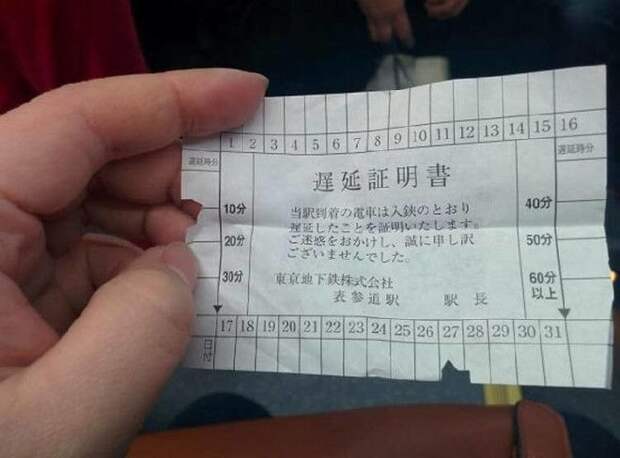 1 2 3 4 5 6 7 8 9 10 11 12 13 14 15 16
遅延時分
遅延時分
遅延証明書
10分
20分
30分
当駅到着の電車は入鋏のとおり
遅延したことを証明いたします。
ご迷惑をおかけし、誠に申し訳
ございませんでした。
東京地下鉄株式会社
表参道駅 駅長
40分
50分
60分
以上
日付
17 18 19 20 21 22 23 24 25 26 27 28 29 30 31